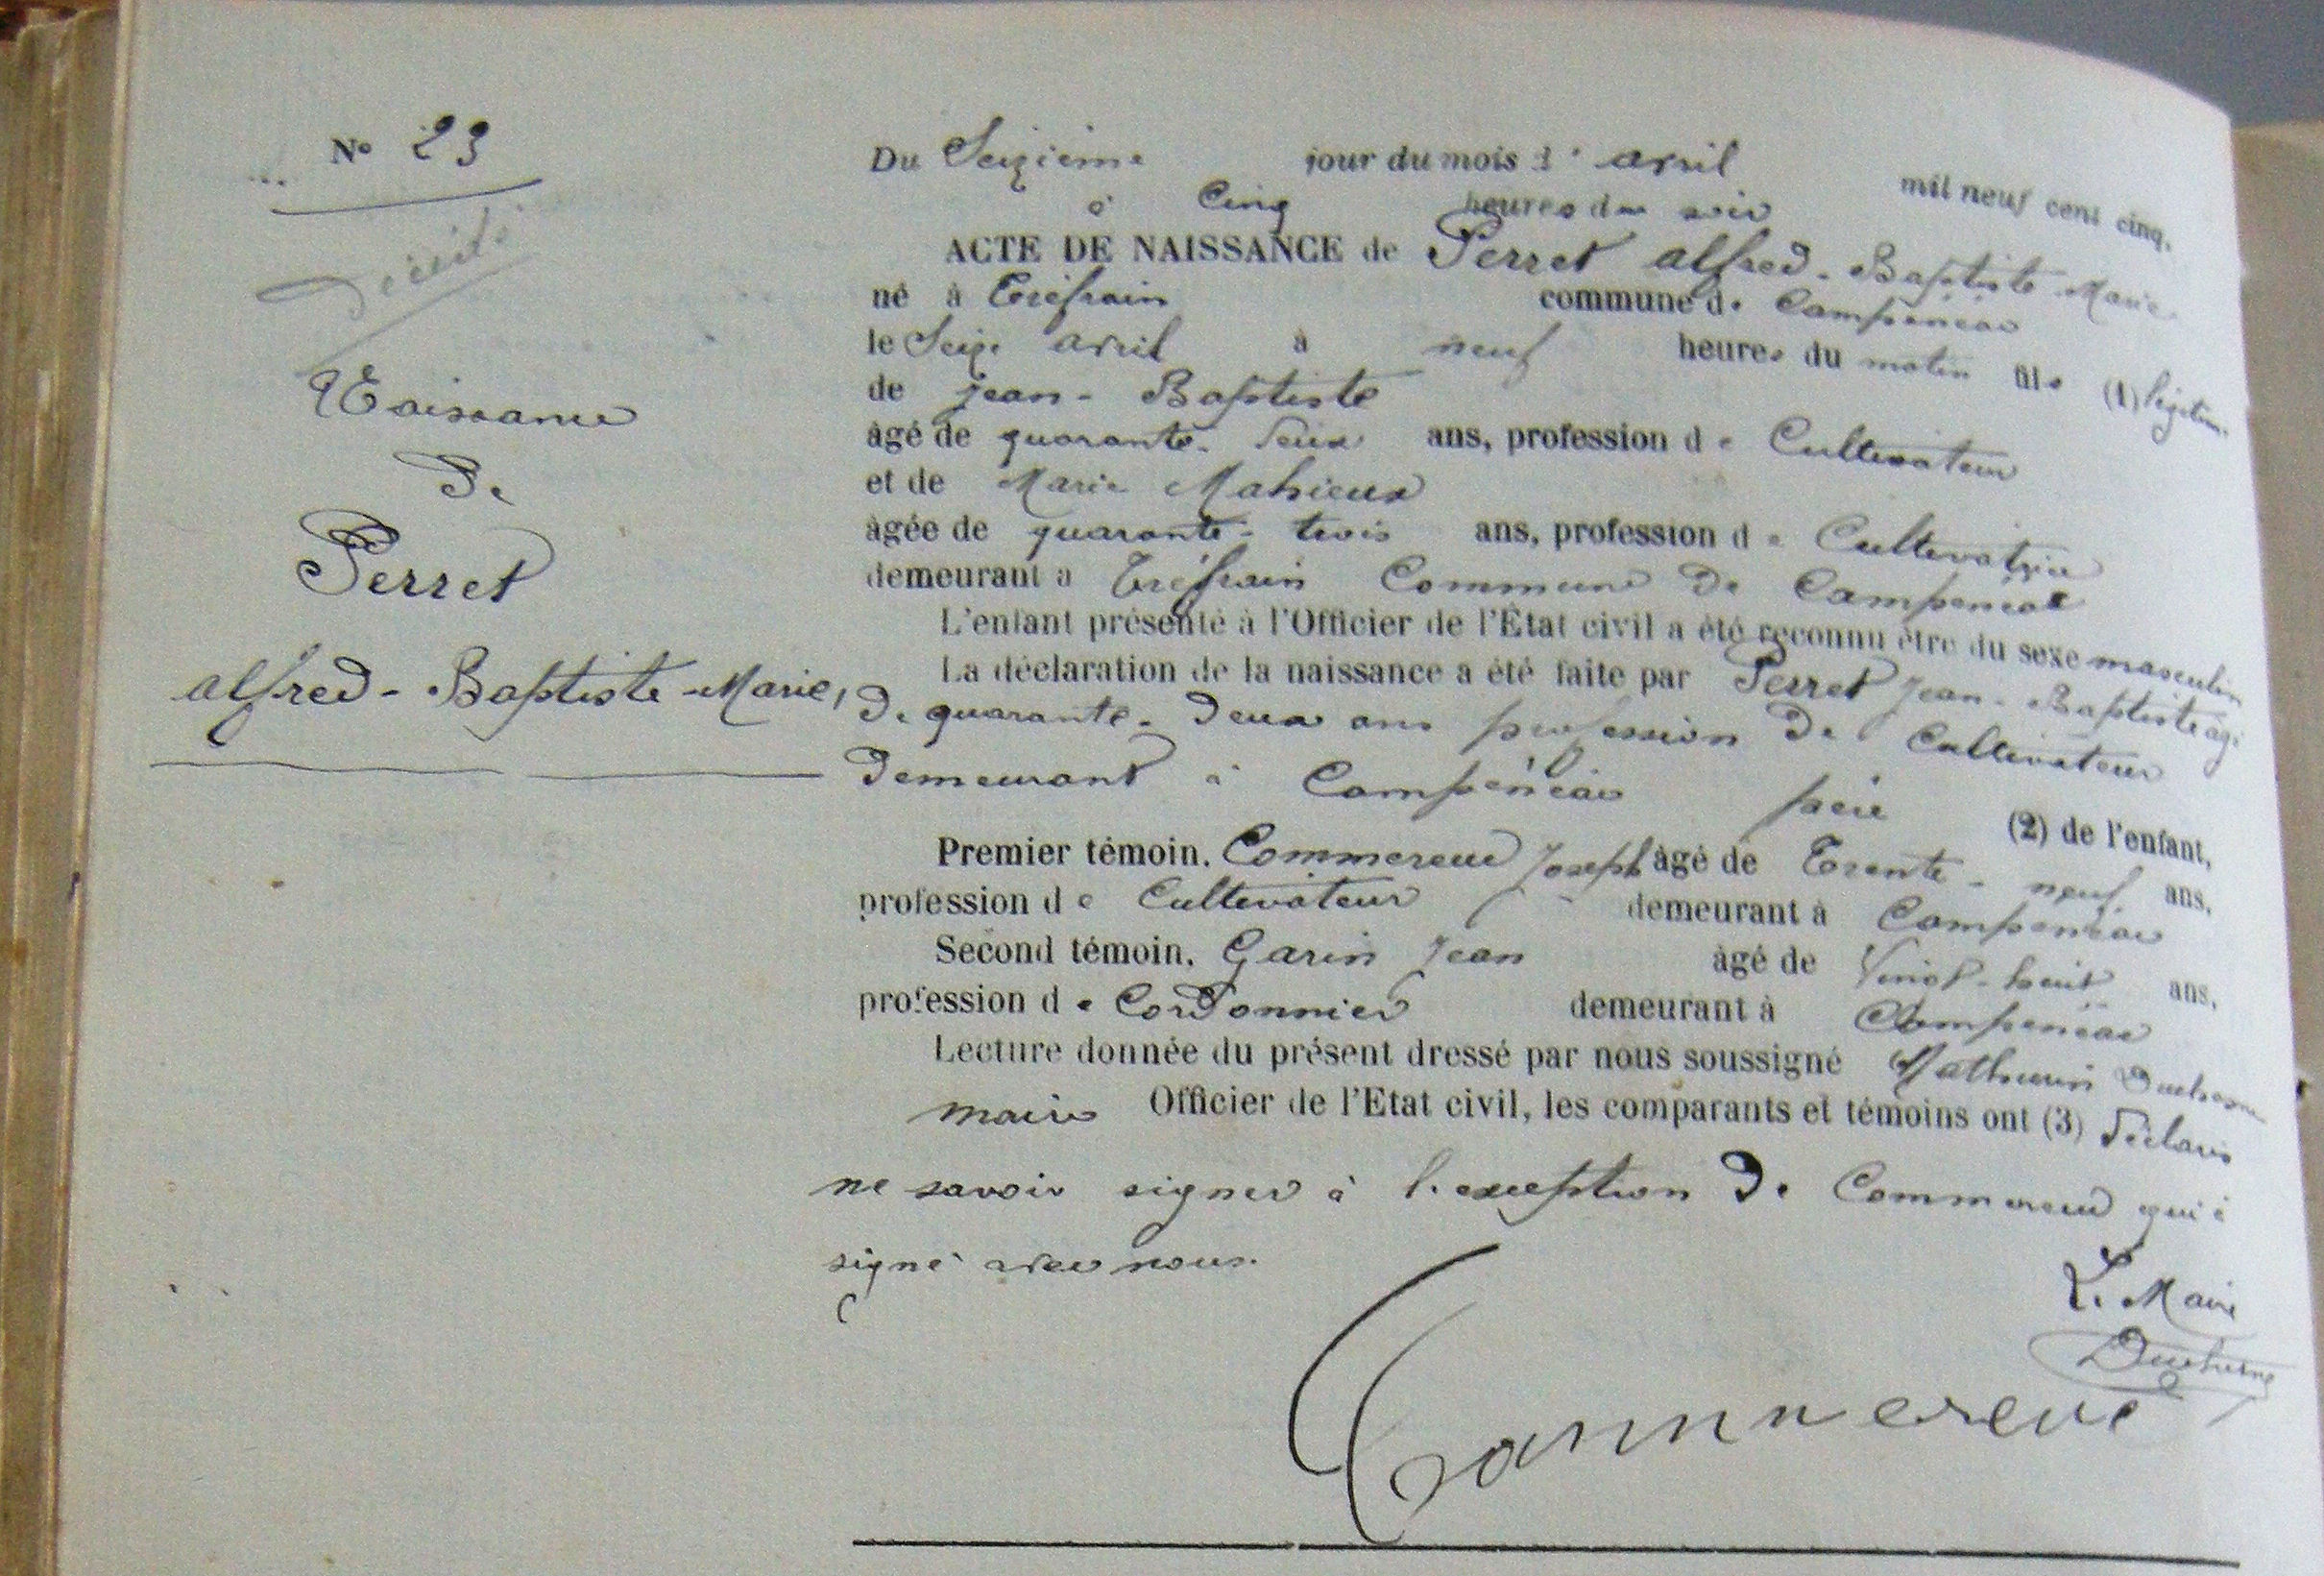 N° 23
Décédé
Naissance
De
Perret
alfred - Baptiste - Marie,
Du Seizième jour du mois d' avril mil neuf cent cinq,
à Cinq heures du soir
ACTE DE NAISSANCE de Perret alfred - Baptiste Marie
né à Tréfrain commune de Campénéac
le Seize avril à neuf heures du matin fils (1) légitime
de Jean - Baptiste
âgé de quarante - deux ans, profession de Cultivateur
et de Marie Mahieux
âgée de quarante - trois ans, profession de Cultivatrice
demeurant à Tréfrain Commune De Campénéac
L'enfant présenté à l'Officier de l'État civil a été reconnu être du sexe masculin
La déclaration de la naissance a été faite par Perret Jean - Baptiste âgé
De quarante - Deux ans profession De Cultivateur
Demeurant à Campénéac père (2) de l'enfant,
Premier témoin. Commereuc Joseph âgé de Trente - neuf ans,
profession de Cultivateur demeurant à Campénéac
Second témoin. Garin Jean âgé de Vingt - huit ans,
profession de Cordonnier demeurant à Campénéac
Lecture donnée du présent dressé par nous soussigné Mathurin Duchesne
maire Officier de l'Etat civil, les comparants et témoins ont (3) déclaré
ne savoir signer à l'exception De Commereuc qui à
signé avec nous.
Le Maire
Duchesne
Commereuc